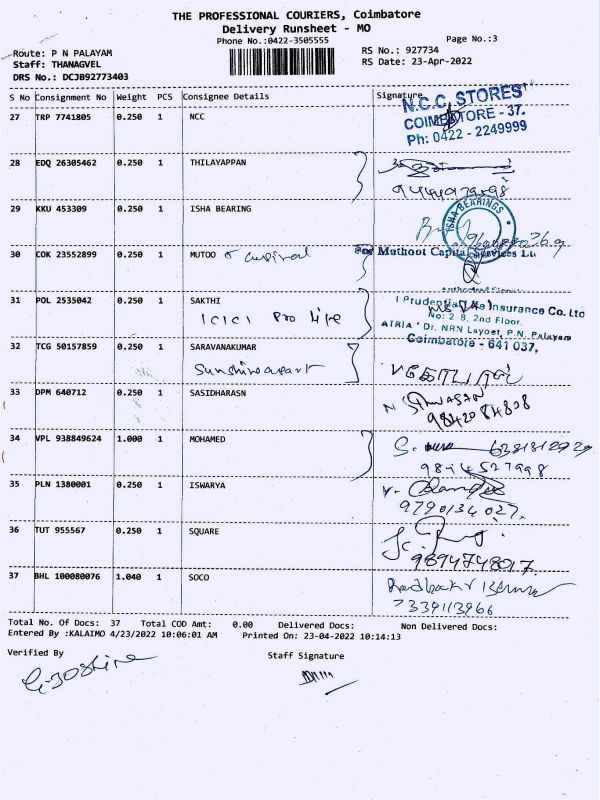 THE PROFESSIONAL COURIERS, Coimbatore
Delivery Runsheet - MO
Phone No.:0422-3505555 Page No.:3
Route: P N PALAYAM RS No.: 927734
Staff: THANAGVEL RS Date: 23-Apr-2022
DRS No.: DCJB92773403
S No Consignment No Weight PCS Consignee Details Signature
27 TRP 7741805 0.250 1 NCC
N.C.C. STORES
COIMBATORE - 37.
Ph: 0422 - 2249999
28 EDQ 26305462 0.250 1 THILAYAPPAN
29 KKU 453309 0.250 1 ISHA BEARING
ISHA BEARINGS
30 COK 23552899 0.250 1 MUTOO
For Muthoot Capital Services Lt
31 POL 2535042 0.250 1 SAKTHI
ICICI Pro life
Prudential Life Insurance Co. Ltd
No: 2 8, 2nd Floor,
ATRIA' Dr. NRN Layoet, P.N. Palayam
Coimbatore - 641 037.
32 TCG 50157859 0.250 1 SARAVANAKUMAR
33 DPM 640712 0.250 1 SASIDHARASN
9842084808
34 VPL 938849624 1.000 1 MOHAMED
9894527998
35 PLN 1380001 0.250 1 ISWARYA
9790134027.
36 TUT 955567 0.250 1 SQUARE
9894748017.
37 BHL 100080076 1.040 1 SOCO
7339113966
Total No. Of Docs: 37 Total COD Amt: 0.00 Delivered Docs: Non Delivered Docs:
Entered By :KALAIMO 4/23/2022 10:06:01 AM Printed On: 23-04-2022 10:14:13
Verified By Staff Signature